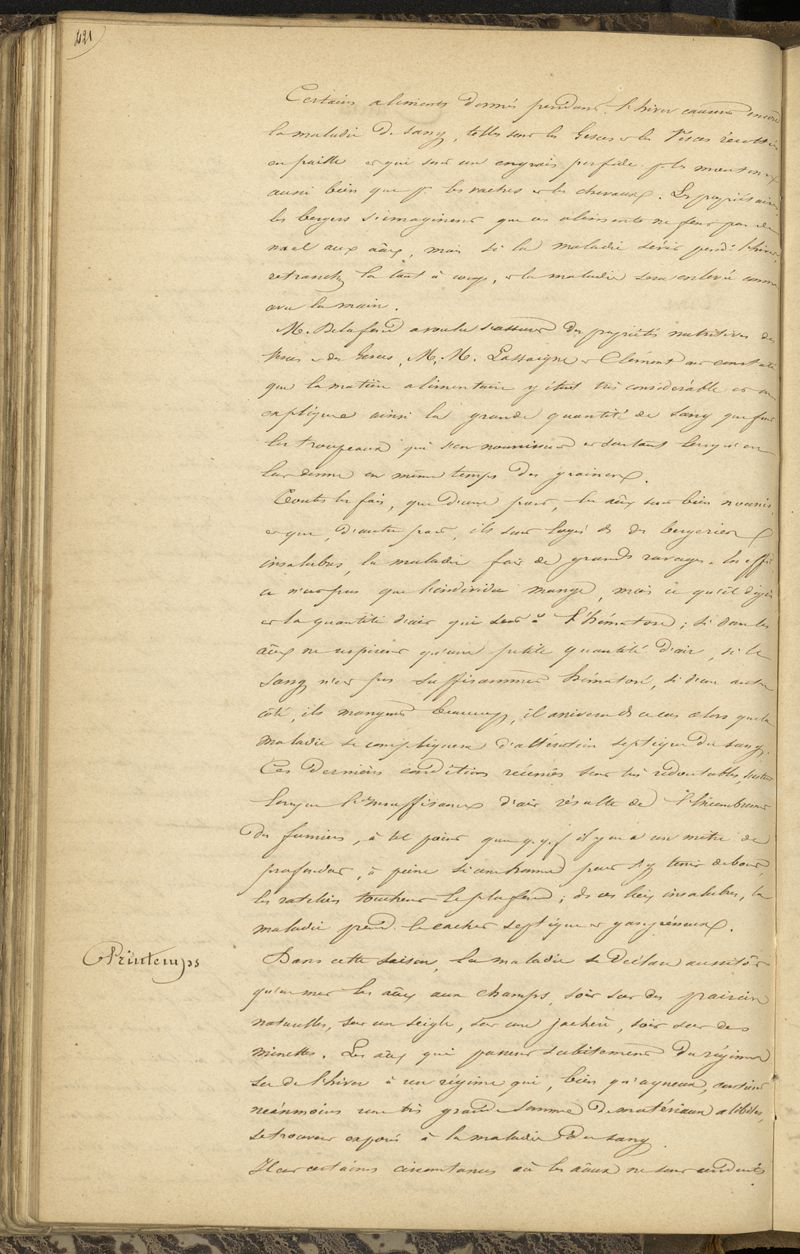 421
Certains aliments donnés pendant l'hiver causent encore
la maladie de sang, telles sont les Gesces et les Vesces récoltées
en paille et qui sont un engrais perfide pr les moutons
aussi bien que pr les vaches et les chevaux. Les propriétaires
les bergers s'imaginent que ces aliments ne font pas de
mal aux aux, mais si la maladie sévit pendt l'hiver,
retranchez la tout à coup, et la maladie sera enlevée comme
avec la main.
M. Delafond a voulu s'assurer des propriétés nutritives des
Vesces et des Gesces, M. M. Lassaigne et Clément ont constaté
que la matière alimentaire y était très considérable et on
explique ainsi la grande quantité de sang que font
les troupeaux qui s'en nourrissent et surtout lorsqu'on
leur donne en même temps des graines.
Toutes les fois, que d'une part, les aux sont bien nourris
et que, d'autre part, ils sont logés ds des bergeries
insalubres, la maladie fait de grands ravages.
ce n'est pas que l'individu mange, mais ce qu'il digère
et la quantité d'air qui sert à l'hématose ; si donc les
aux ne respirent qu'une petite quantité d'air, si le
sang n'est pas suffisamment hématosé, si d'un autre
côté, ils mangent beaucoup, il arrivera ds ce cas alors que la
maladie se compliquera d'altération septique du sang.
Ces dernières conditions réunies sont très redoutables, surtout
lorsque l'insuffisance d'air résulte de l'encombrement
des fumiers, à tel point que q. q. f il y en a un mètre de
profondeur, à peine si un homme peut s'y tenir debout,
les rateliers touchent le plafond ; ds ces lieux insalubres, la
maladie prend le cachet septique et gangréneux.
Printemps
Dans cette saison, la maladie se déclare aussitôt
qu'on met les aux aux champs, soit sur des prairies
naturelles, sur un seigle, sur une jachère, soit sur des
minettes. Les aux qui passent subitement du régime
sec de l'hiver à un régime qui, bien qu'aqueux, contient
néanmoins une très grande somme de matériaux alibiles,
se trouvent exposés à la maladie de sang.
Il est certaines circonstances où les aux ne sont conduits